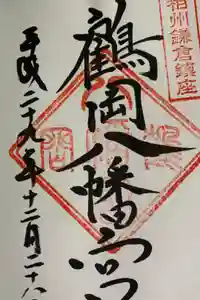 相州鎌倉鎮座
鶴岡八幡宮
平成二十九年十二月二十八